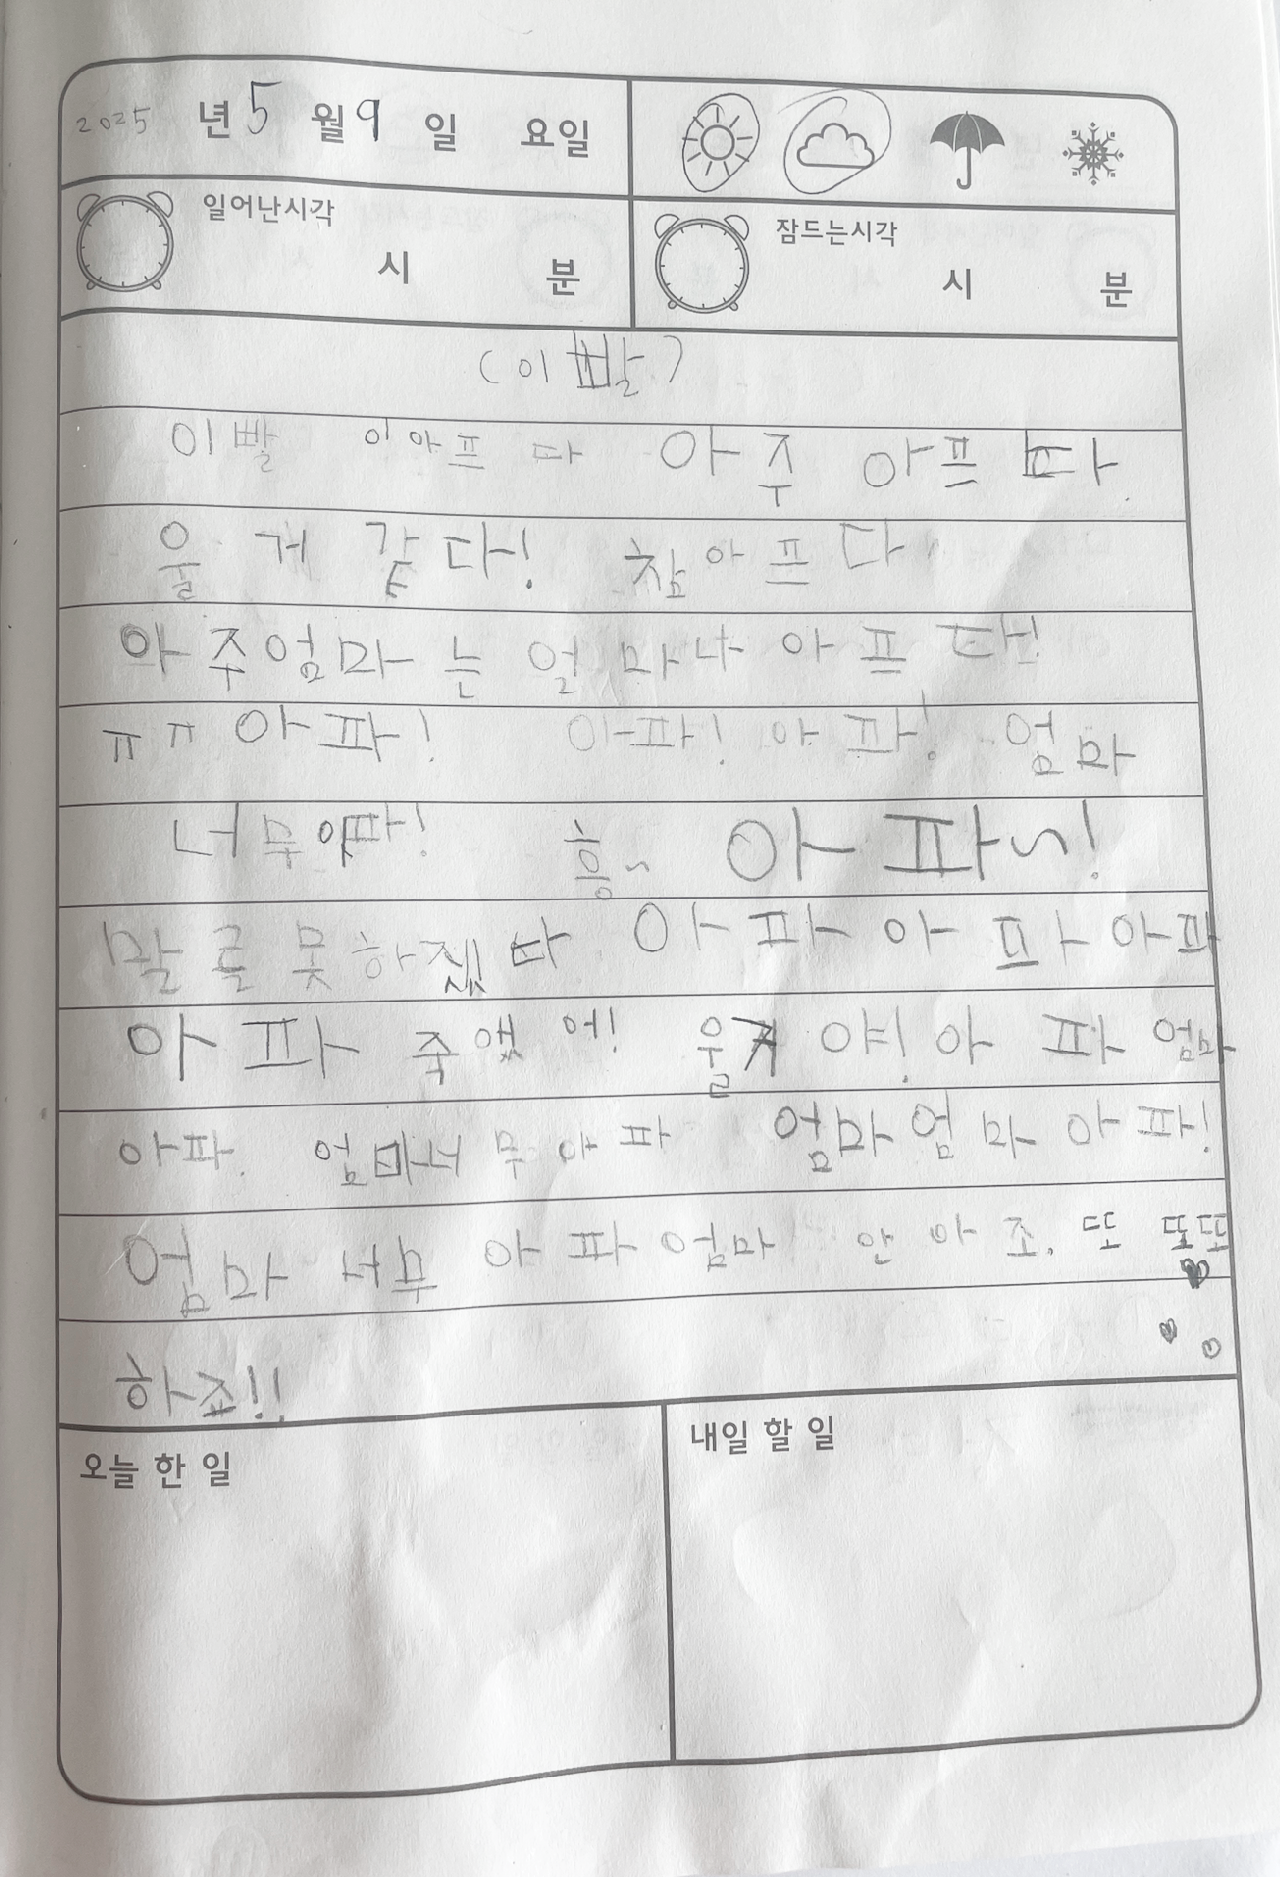 2025 년 5 월 9 일 요일
일어난시각 시 분
잠드는시각 시 분
(이빨)
이빨 이아프다 아주 아프다.
울 게 같다! 참아프다
아주엄마는 얼마나 아프다!
ㅠㅠ 아파! 아파! 아파! 엄마
너무아파! 흥~ 아파~!
말를 못하겠다 아파아파아파
아파 죽겠어! 울거야! 아파 엄마
아파. 엄마너무아파 엄마엄마아파!
엄마 너무 아파엄마 안아조. 또 또또
하죠!!
오늘 한 일
내일 할 일